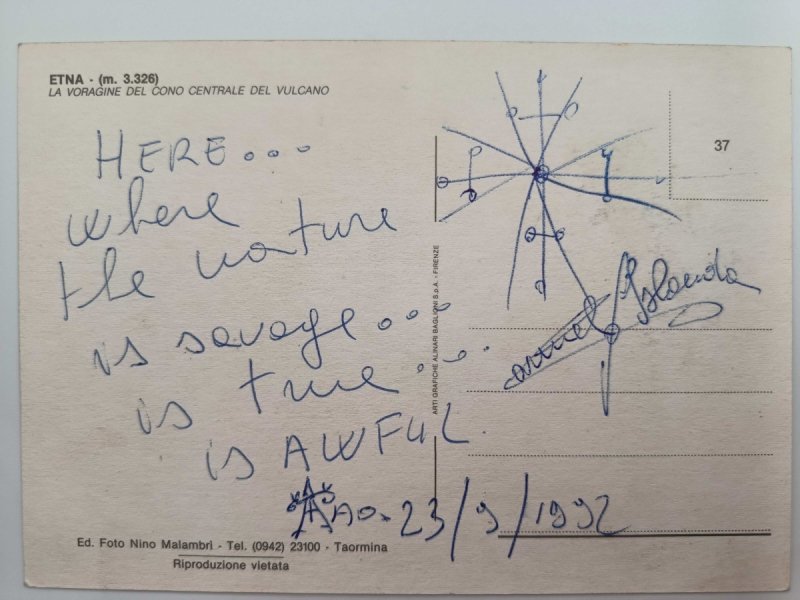 ETNA - (m. 3.326)
LA VORAGINE DEL CONO CENTRALE DEL VULCANO
37
HERE...
where
the nature
is savage...
is true...
is AWFUL.
23/9/1992
ARTI GRAFICHE ALINARI BAGLIONI S.p.A. - FIRENZE
Ed. Foto Nino Malambrì - Tel. (0942) 23100 - Taormina
Riproduzione vietata